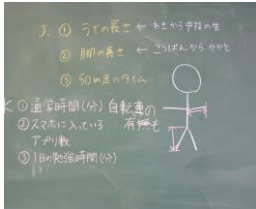 J. ① うでの長さ ← わきから中指の先
② 脚の長さ ← こつばんから かかと
③ 50m走のタイム
K ① 通学時間(分) 自転車の有無も
② スマホに入っている
アプリ数
③ 1日の勉強時間(分)